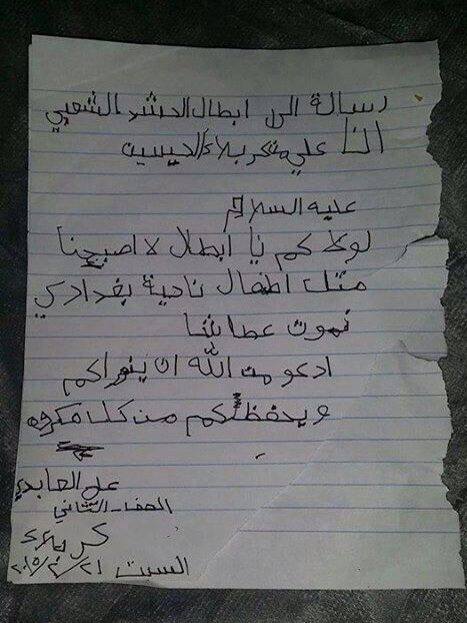 رسالة الى ابطال الحشد الشعبي
انا علي من كربلاء الحسين
عليه السلام
لولا كم يا ابطال لا اصبحنا
مثل اطفال ناحية بغدادي
نموت عطاشا
ادعو من الله ان ينصراكم
ويحفظكم من كل مكروه
علي العابدي
الصف الثاني
كربلاء
السبت ٢٠١٥/٢/٢١